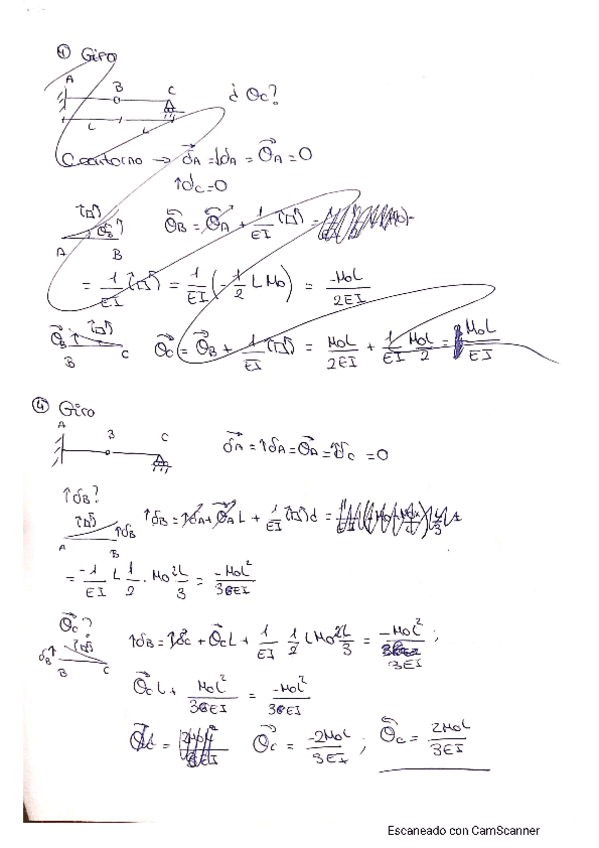 ④ Giro
A B C
¿ θc?
L L
Contorno → δA = ↑δA = θA = 0
↑δc = 0
θB = θA + 1/EI
A B
= 1/EI = 1/EI (-1/2 L Mo) = -MoL/2EI
θB B C θc = θB + 1/EI = MoL/2EI + 1/EI MoL/2 = MoL/EI
④ Giro
A B C
δA = ↑δA = θA = ↑δc = 0
↑δB?
↑δB = ↑δA + θA L + 1/EI d =
A B ↑δB
= -1/EI L 1/2 · Mo 2L/3 = -MoL²/3EI
θc?
δB↑ B C ↑δB = ↑δc + θc L + 1/EI 1/2 L Mo 2L/3 = -MoL²/3EI ;
θc L + MoL²/3EI = -MoL²/3EI
θc = -2MoL/3EI ; θc = 2MoL/3EI
Escaneado con CamScanner